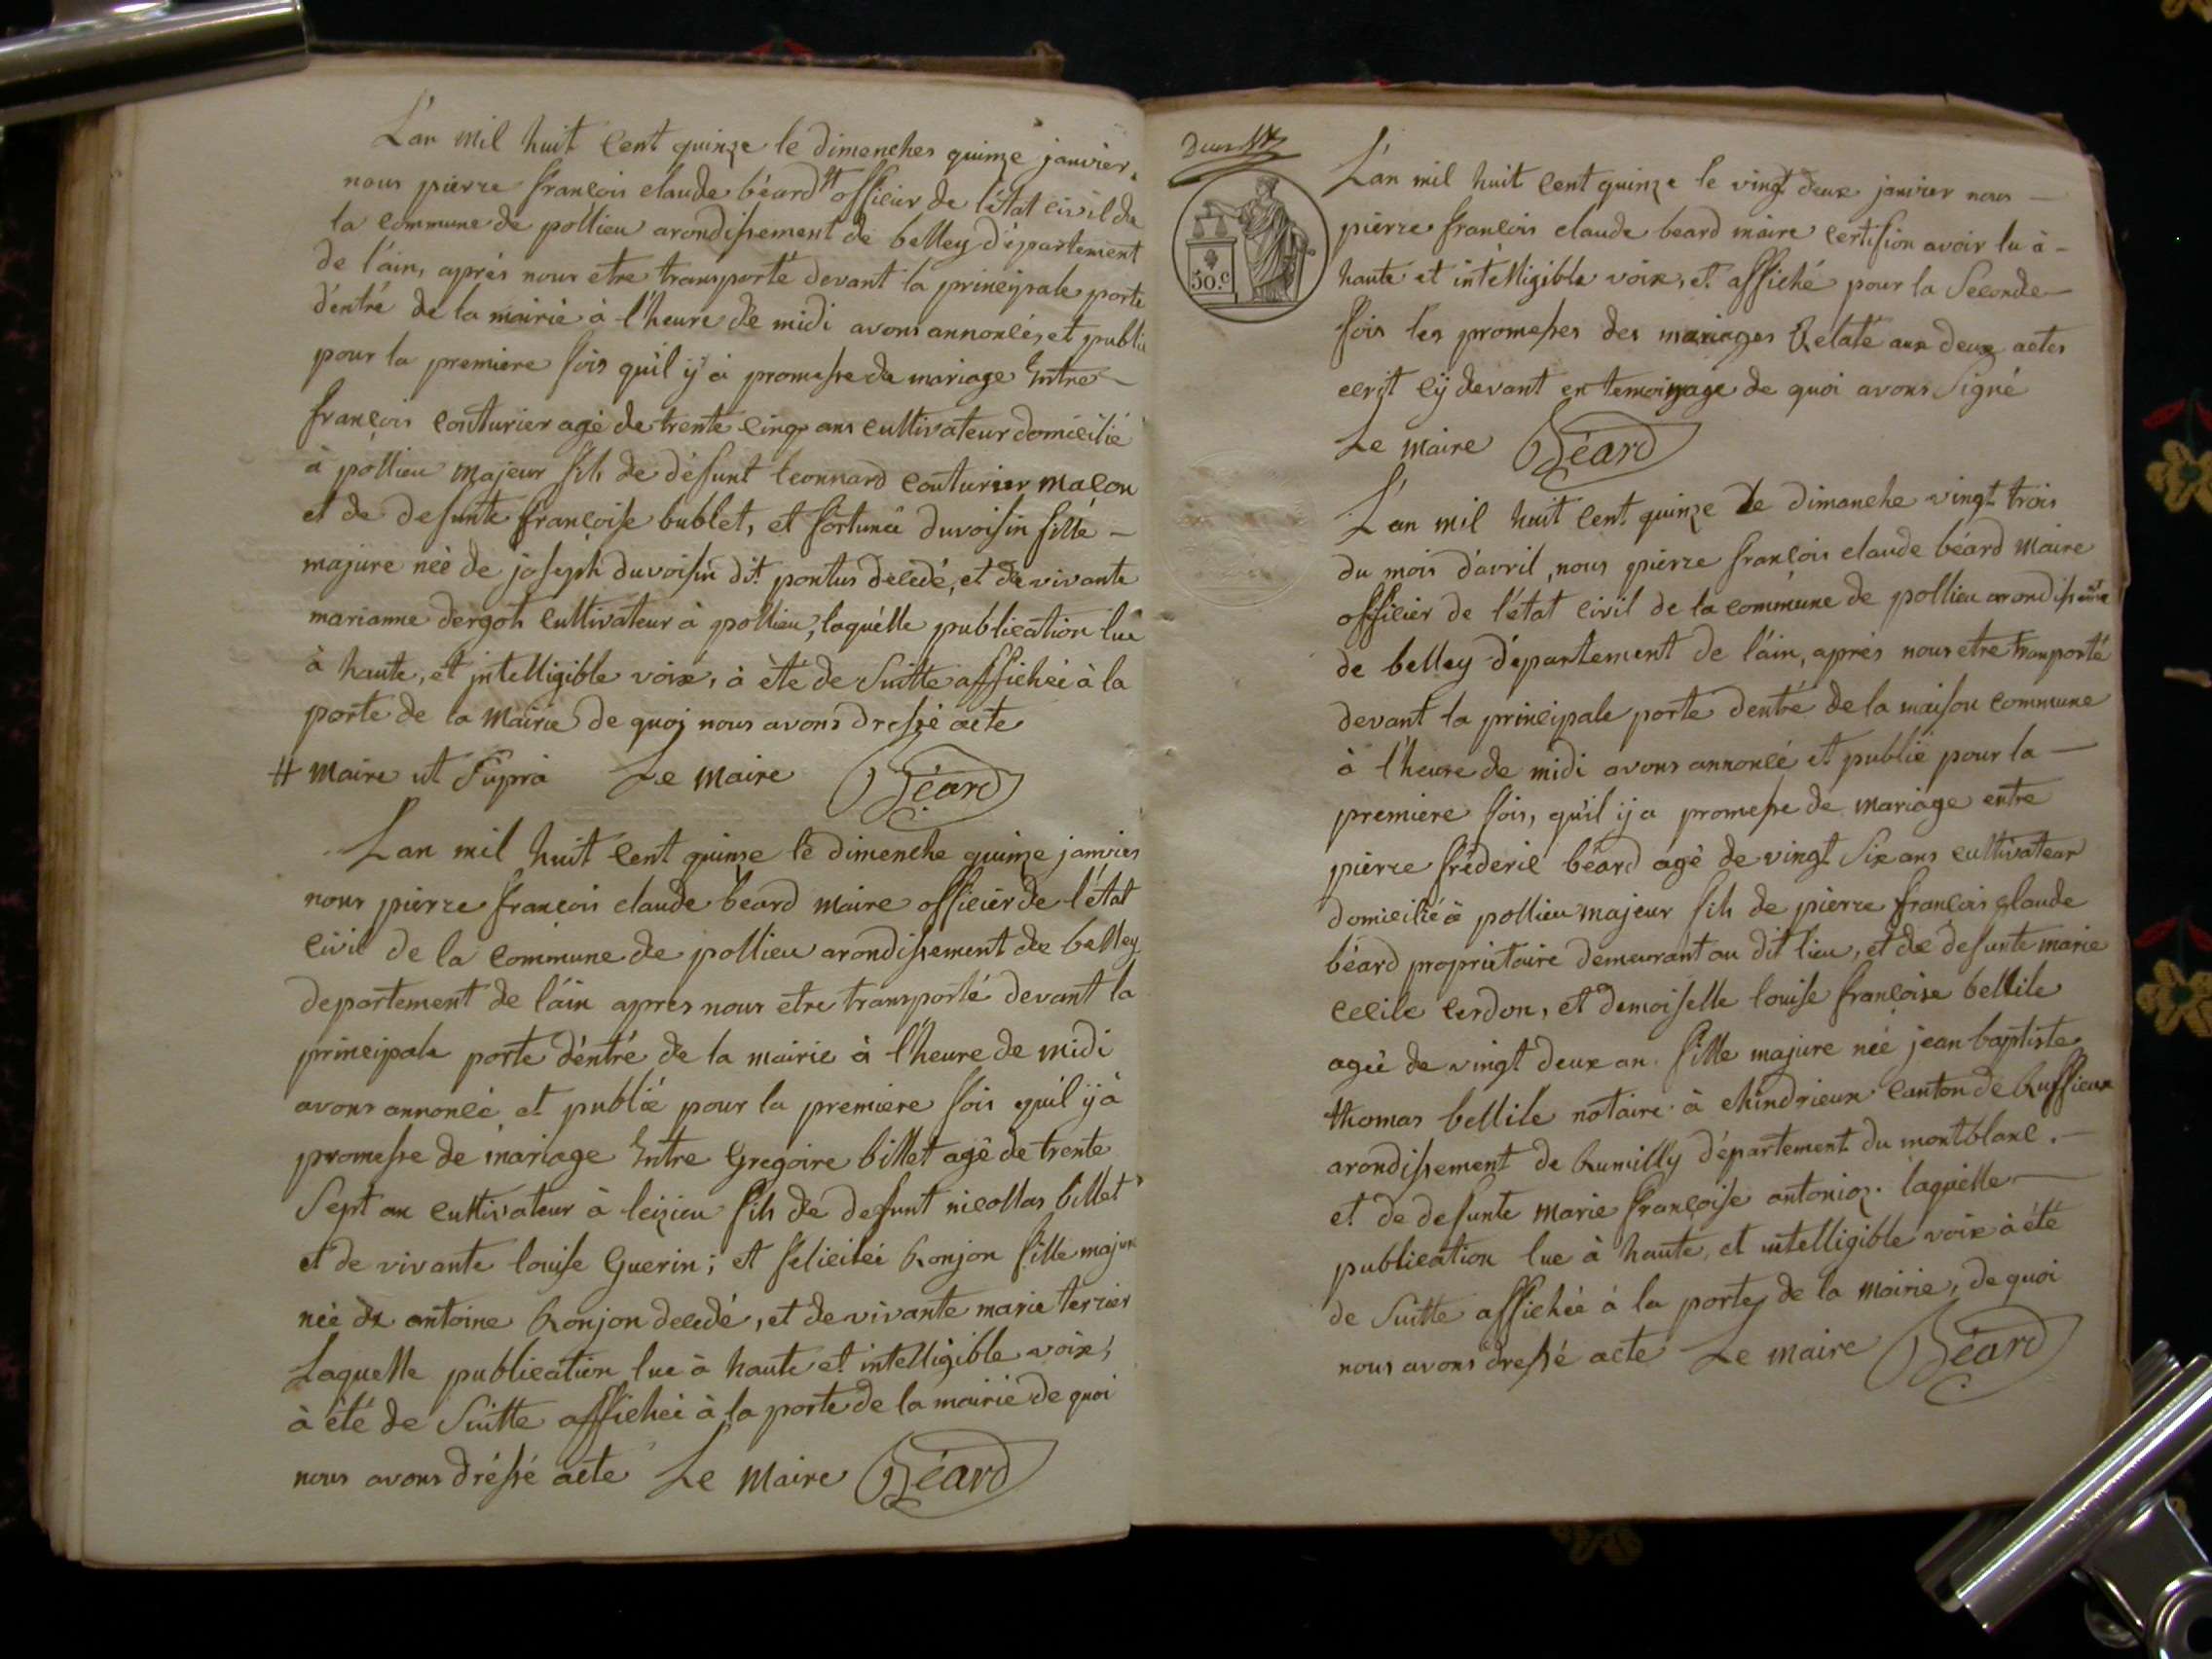 L'an mil huit cent quinze le dimenches quinze janvier.
nous pierre françois claude béard # officier de l'état civil de
la commune de pollieu arondissement de belley département
de l'ain, aprés nous etre transporté devant la principale porte
d'éntré de la mairie à l'heure de midi avons annoncés et publié
pour la premiere fois qu'il ÿ à promesse de mariage Entre
françois couturier agé de trente cinq ans cultivateur domicilié
à pollieu majeur fils de défunt leonnard couturier maçon
et de defunte françoise bublet, et fortunée duvoisin fille
majure née de joseph duvoisin dit pontus decedé, et de vivante
marianne dergoh cultivateur à pollieu, laquélle publication lue
à haute, et intelligible voix, à èté de suitte affichéé à la
porte de la mairie de quoj nous avons dressé acte
# maire ut suprà Le maire Béard
L'an mil huit cent quinze le dimenche quinze janvier
nous pierre françois claude beard maire officier de l'état
civil de la commune de pollieu arondissement de belley
departement de l'ain apres nous etre transporté devant la
principale porte d'éntré de la mairie à l'heure de midi
avons annoncé et publié pour la premiere fois quil ÿ à
promesse de mariage Entre Gregoire billet agé de trente
Sept an cultivateur à leizieu fils de defunt nicollas billet
et de vivante louise Guerin; et félicitéé Ronjon fille majure
née de antoine Ronjon decedé, et de vivante marie terrier
Laquelle publication lue à haute et intelligible voix,
à èté de suitte affichéé à la porte de la mairie de quoi
nous avons dréssé acte Le maire Béard
50.c
L'an mil huit cent quinze le vingt deux janvier nous
pierre françois claude beard maire certifion avoir lu à
haute et intélligible voix, et affiché pour la seconde
fois les promesses des mariages Relaté aux deux actes
ecrit cÿ devant en temoignage de quoi avons signé
Le maire Béard
L'an mil huit cent quinze Le dimanche vingt trois
du mois d'avril, nous pierre françois claude béard maire
officier de l'état civil de la commune de pollieu arondissement
de belley département de l'ain, aprés nous etre tranporté
devant la principale porte dentré de la maison commune
à l'heure de midi avons annoncé et publié pour la
premiere fois, qu'il ij a promesse de mariage entre
pierre fréderic béard agé de vingt six ans cultivateur
domicilié à pollieu majeur fils de pierre françois claude
béard propriétaire demeurant au dit lieu, et de defunte marie
cecile cerdon, et demoiselle louise françoise bellile
agée de vingt deux an fille majure née jean baptiste
thomas bellile notaire à chindrieux canton de Ruffieux
arondissement de Rumilly département du montblanc.
et de defunte marie françoise antonioz. laquélle
publication lue à haute, et intelligible voix à été
de suitte affichée à la porte de la mairie, de quoi
nous avons dressé acte Le maire Béard